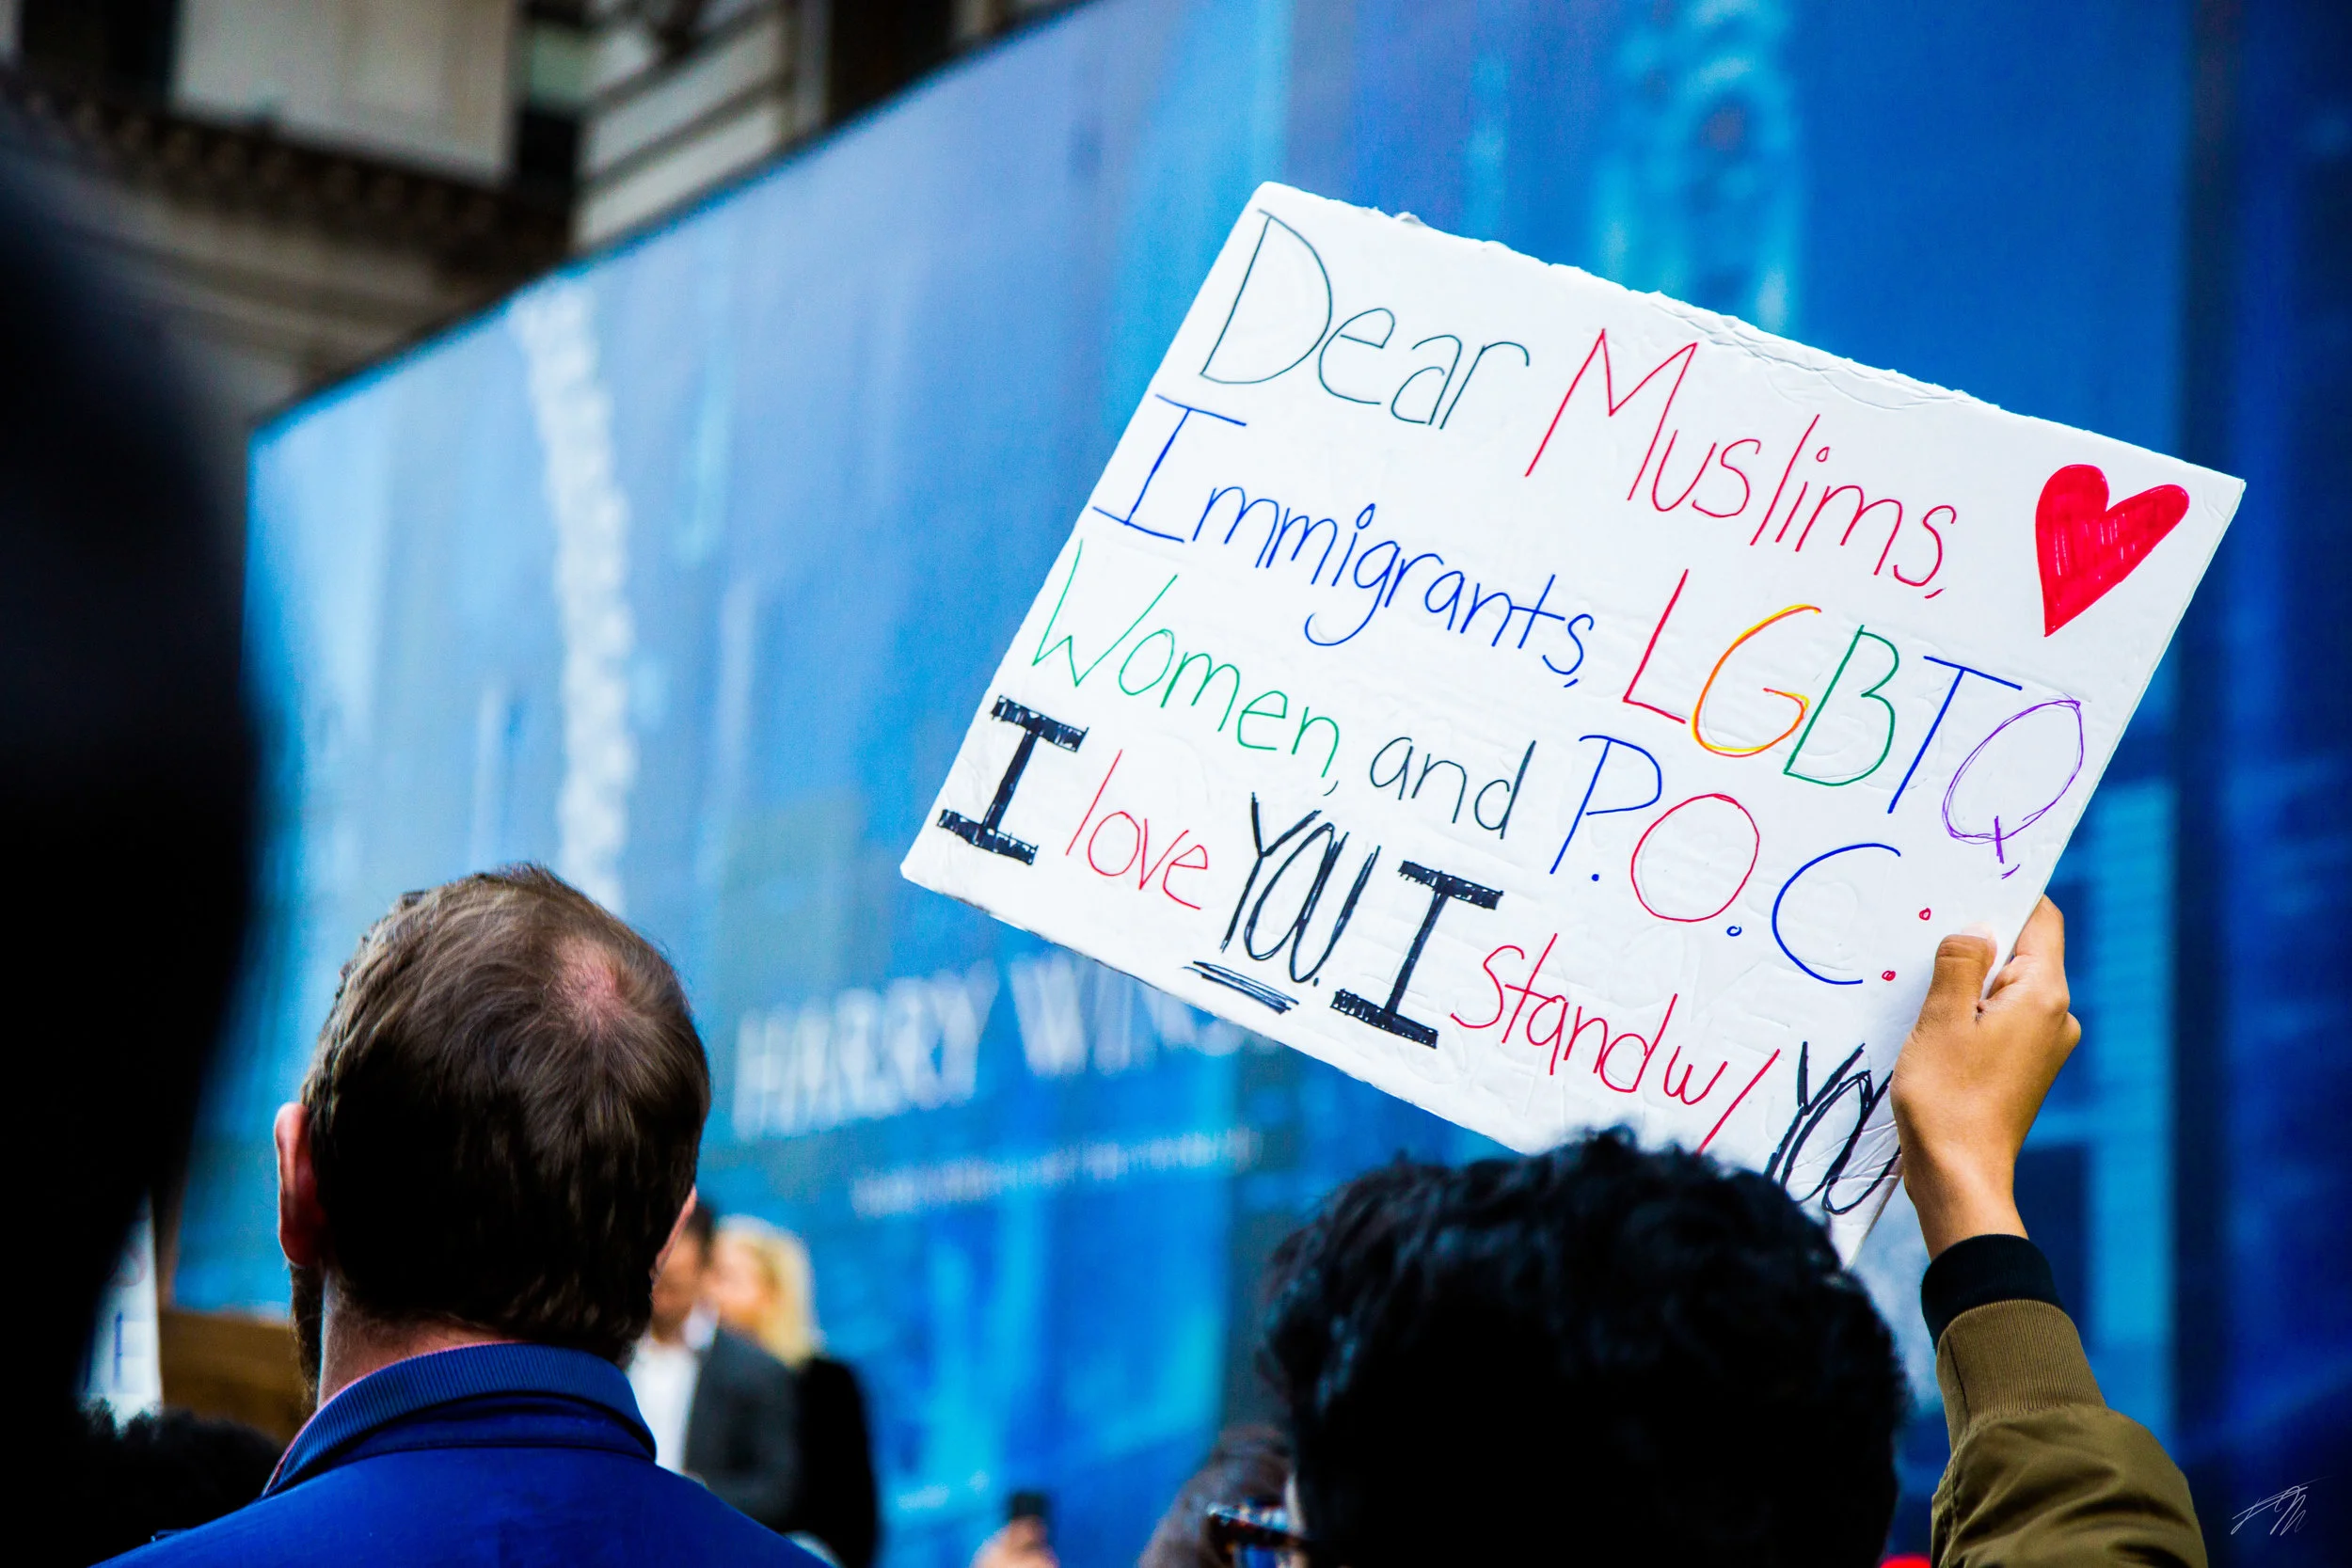 Dear Muslims,
Immigrants, LGBTQ,
Women, and P.O.C.:
I love YOU. I stand w/ YOU
HARRY